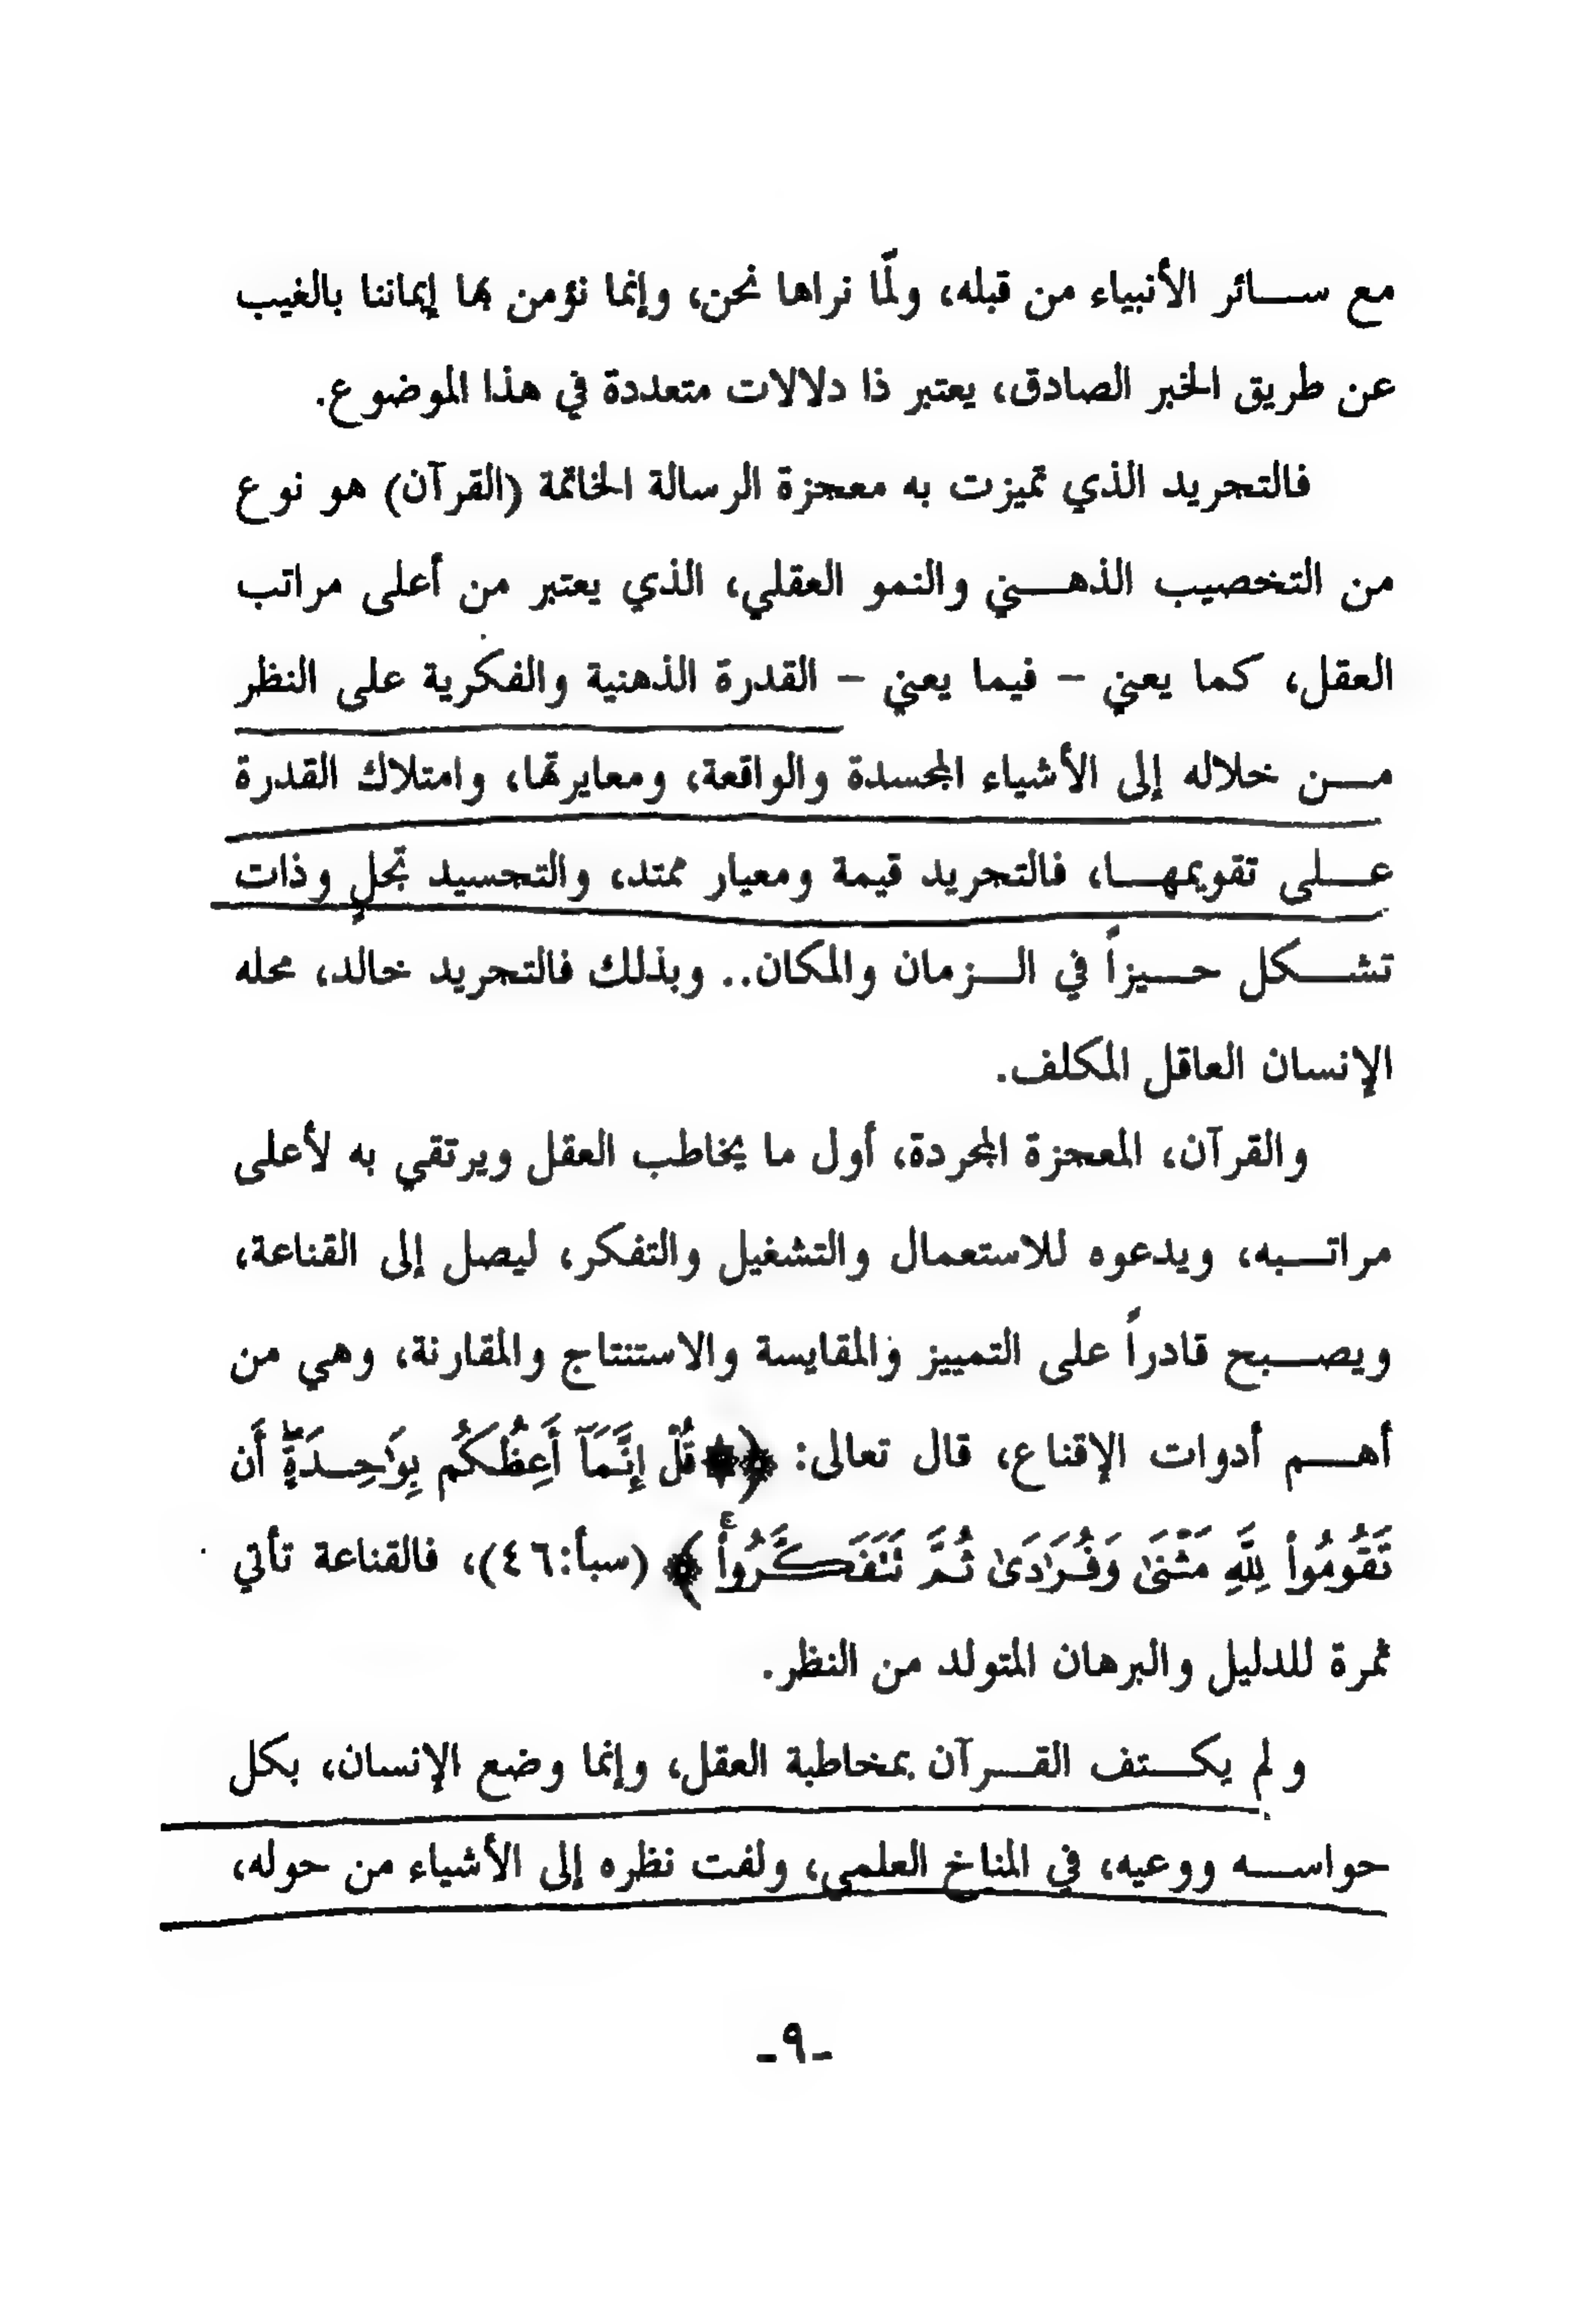 مع سائر الأنبياء من قبله، ولمّا نراها نحن، وإنما نؤمن بها إيماننا بالغيب
عن طريق الخبر الصادق، يعتبر ذا دلالات متعددة في هذا الموضوع.
فالتجريد الذي تميزت به معجزة الرسالة الخاتمة (القرآن) هو نوع
من التخصيب الذهني والنمو العقلي، الذي يعتبر من أعلى مراتب
العقل، كما يعني - فيما يعني - القدرة الذهنية والفكرية على النظر
من خلاله إلى الأشياء المجسدة والواقعة، ومعايرتها، وامتلاك القدرة
على تقويمها، فالتجريد قيمة ومعيار ممتد، والتجسيد تجلٍ وذات
تشكل حيزاً في الزمان والمكان.. وبذلك فالتجريد خالد، محله
الإنسان العاقل المكلف.
والقرآن، المعجزة المجردة، أول ما يخاطب العقل ويرتقي به لأعلى
مراتبه، ويدعوه للاستعمال والتشغيل والتفكر، ليصل إلى القناعة،
ويصبح قادراً على التمييز والمقايسة والاستنتاج والمقارنة، وهي من
أهم أدوات الإقناع، قال تعالى: ﴿۞ قُلْ إِنَّمَآ أَعِظُكُم بِوَٰحِدَةٍۖ أَن
تَقُومُوا۟ لِلَّهِ مَثْنَىٰ وَفُرَٰدَىٰ ثُمَّ تَتَفَكَّرُوا۟ۚ﴾ (سبأ:٤٦)، فالقناعة تأتي
ثمرة للدليل والبرهان المتولد من النظر.
ولم يكتف القرآن بمخاطبة العقل، وإنما وضع الإنسان، بكل
حواسه ووعيه، في المناخ العلمي، ولفت نظره إلى الأشياء من حوله،
-٩-